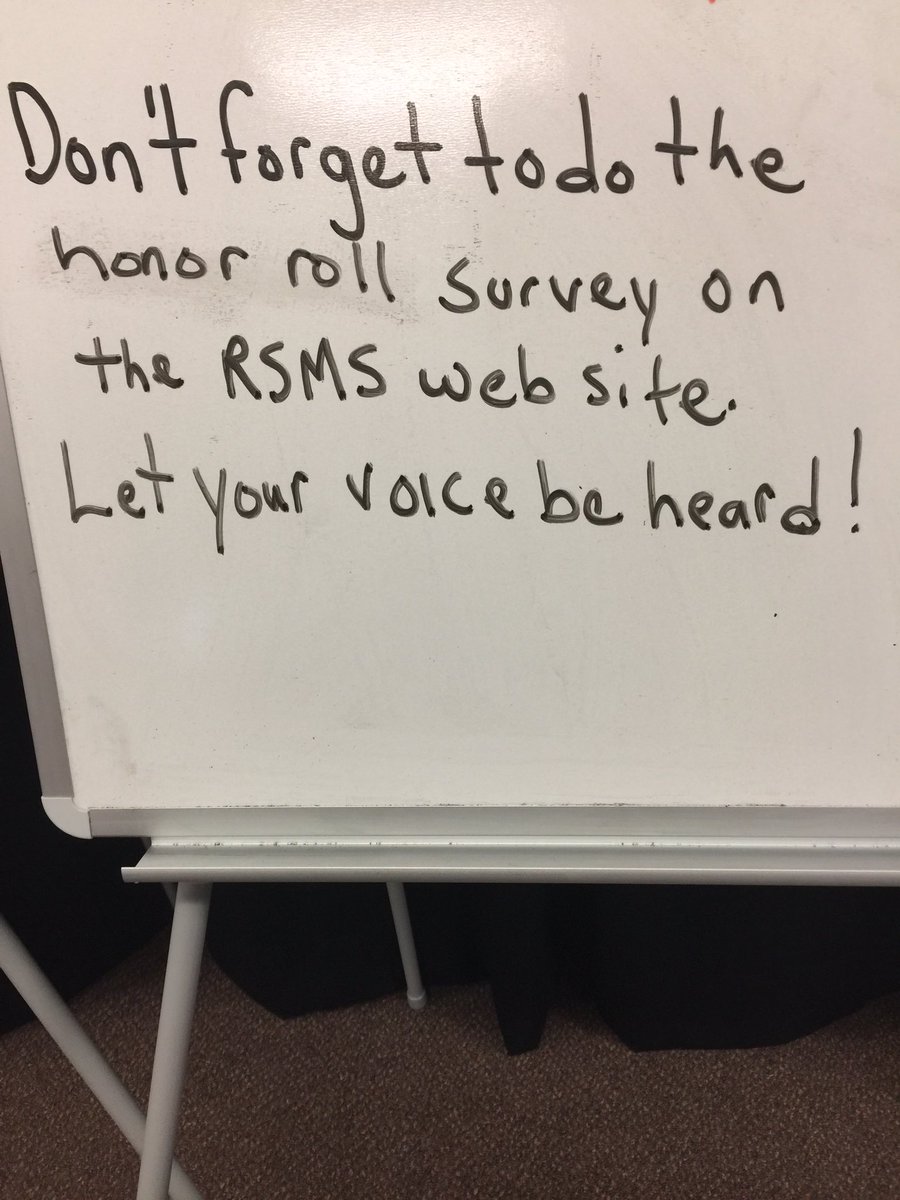 Don't forget to do the
honor roll survey on
the RSMS web site.
Let your voice be heard!